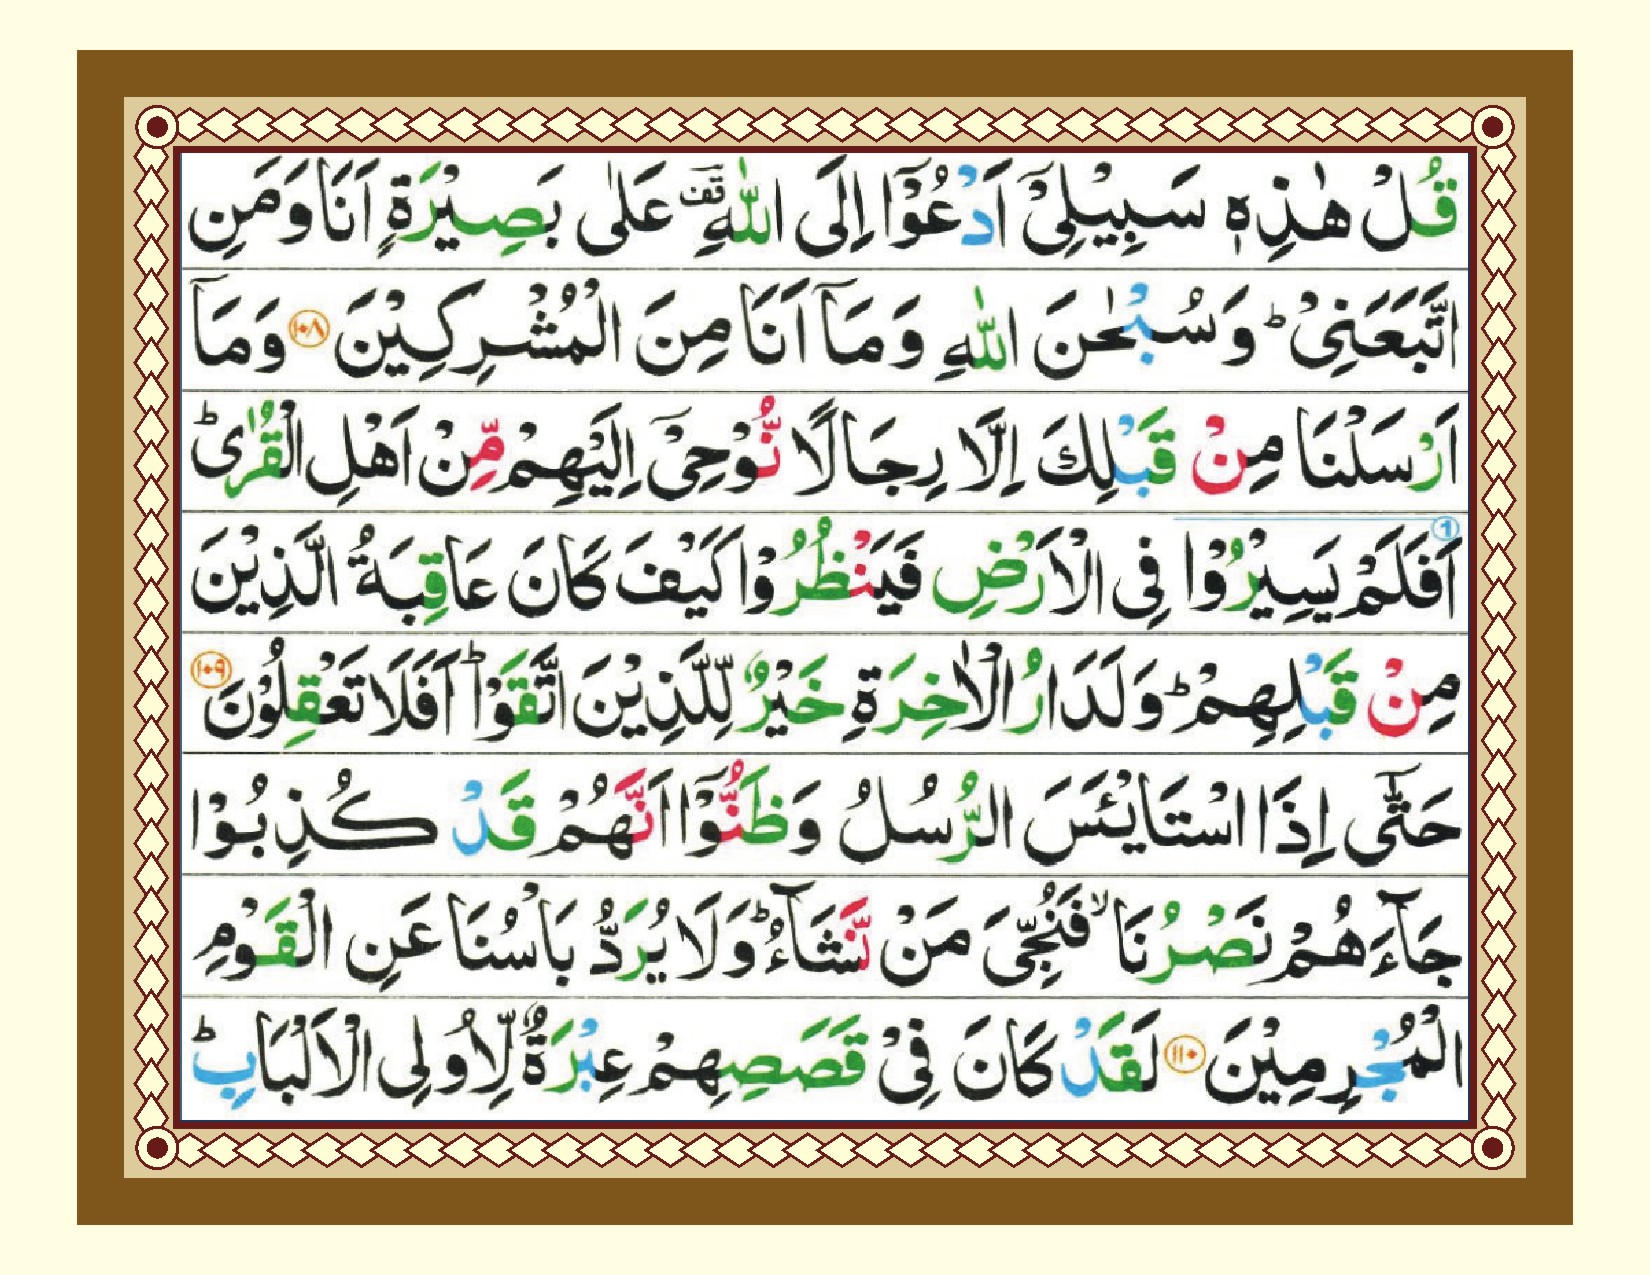 قُلْ هٰذِهٖ سَبِيْلِيْٓ اَدْعُوْٓا اِلَى اللّٰهِ ۣقف عَلٰى بَصِيْرَةٍ اَنَا وَمَنِ
اتَّبَعَنِيْ ؕ وَسُبْحٰنَ اللّٰهِ وَمَآ اَنَا مِنَ الْمُشْرِكِيْنَ ۝۱۰۸ وَمَآ
اَرْسَلْنَا مِنْ قَبْلِكَ اِلَّا رِجَالًا نُّوْحِيْٓ اِلَيْهِمْ مِّنْ اَهْلِ الْقُرٰى ؕ
اَفَلَمْ يَسِيْرُوْا فِى الْاَرْضِ فَيَنْظُرُوْا كَيْفَ كَانَ عَاقِبَةُ الَّذِيْنَ
مِنْ قَبْلِهِمْ ؕ وَلَدَارُ الْاٰخِرَةِ خَيْرٌ لِّلَّذِيْنَ اتَّقَوْا ؕ اَفَلَا تَعْقِلُوْنَ ۝۱۰۹
حَتّٰٓى اِذَا اسْتَايْـَٔسَ الرُّسُلُ وَظَنُّوْٓا اَنَّهُمْ قَدْ كُذِبُوْا
جَآءَهُمْ نَصْرُنَا ۙ فَنُجِّيَ مَنْ نَّشَآءُ ؕ وَلَا يُرَدُّ بَاْسُنَا عَنِ الْقَوْمِ
الْمُجْرِمِيْنَ ۝۱۱۰ لَقَدْ كَانَ فِيْ قَصَصِهِمْ عِبْرَةٌ لِّاُولِى الْاَلْبَابِ ؕ